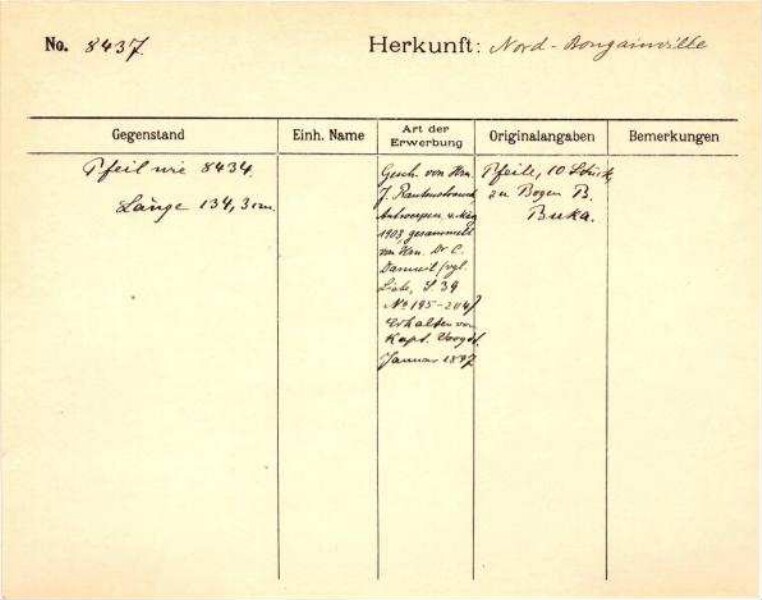 No. 8437. Herkunft: Nord-Bougainville
Gegenstand Einh. Name Art der Erwerbung Originalangaben Bemerkungen
Pfeil wie 8434.
Länge 134,3 cm.
Gesch. von Hrn.
J. Rautenstrauch,
Antwerpen, v. März
1903, gesammelt
von Hrn. Dr C.
(vgl.
Liste, S. 39
No 195-204)
Erhalten von
Kapt. Voogdt.
Januar 1897
Pfeile, 10 Stück,
zu Bogen B.
Buka.